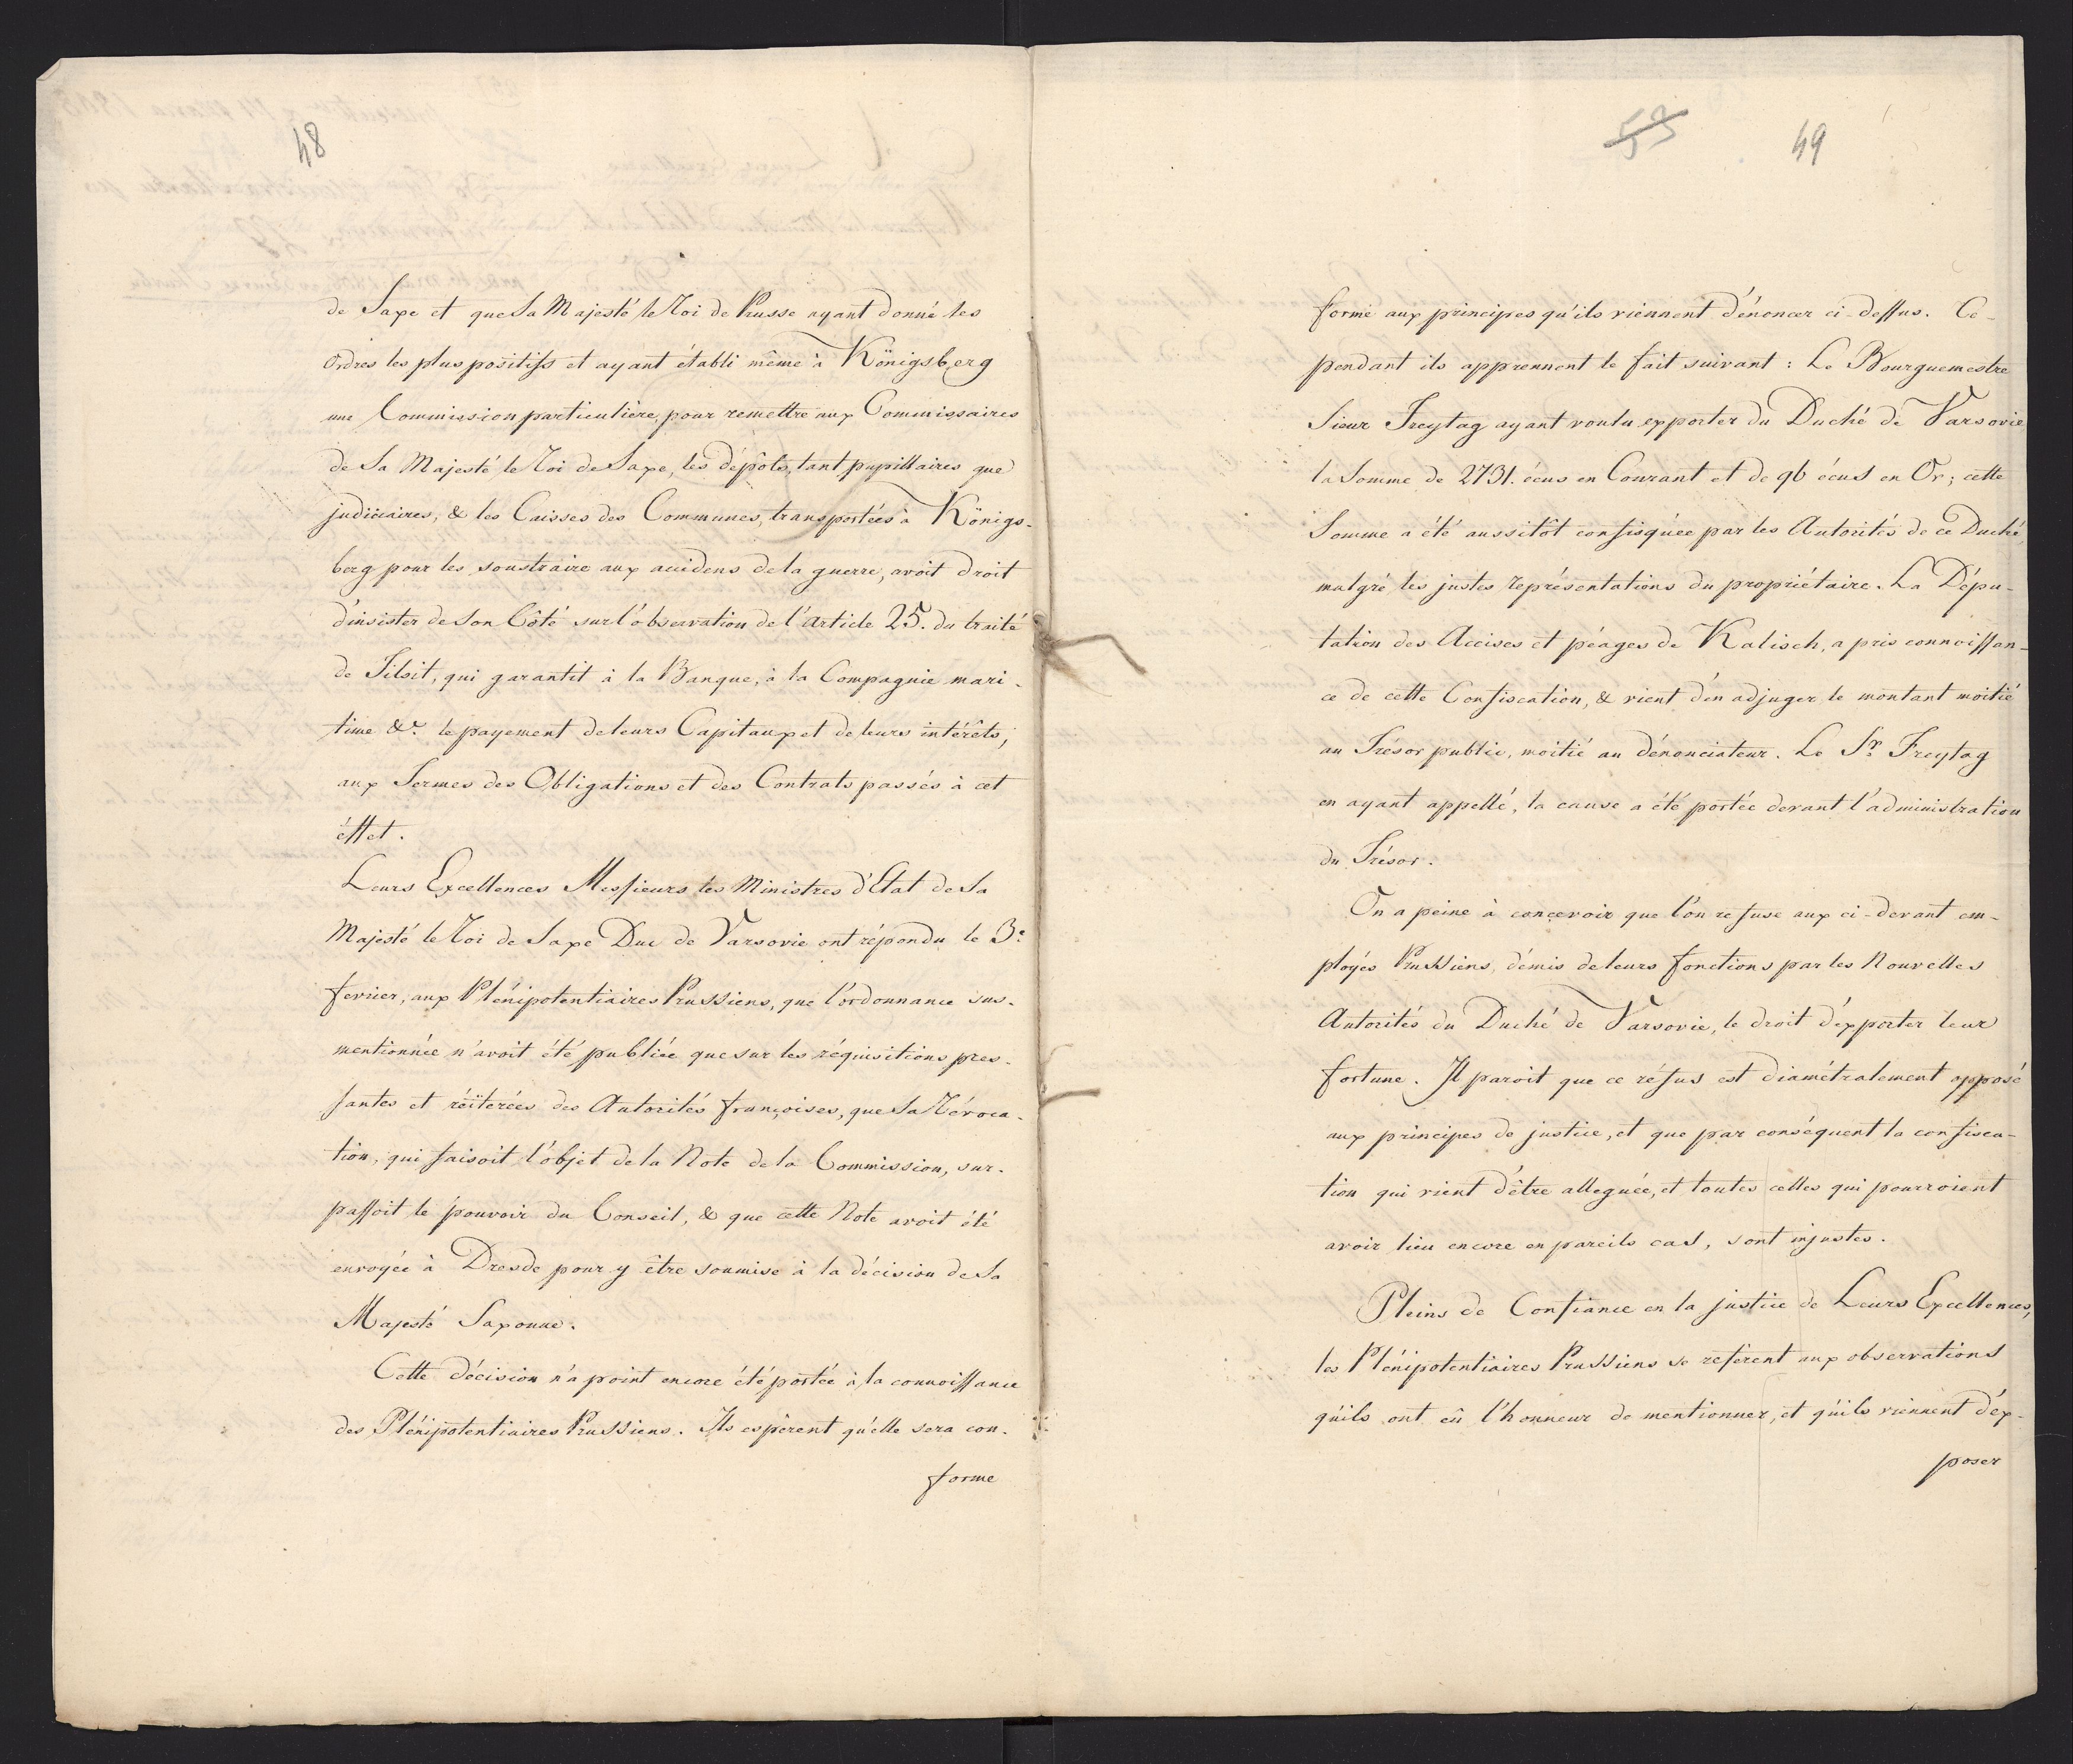 48
de Saxe et que Sa Majesté le Roi de Prusse ayant donné les
ordres les plus positifs et ayant établi même à Königsberg
une Commission particulière, pour remettre aux Commissaires
de Sa Majesté le Roi de Saxe, les dépôts, tant pupillaires que
judiciaires, & les Caisses des Communes, transportées à Königs-
berg pour les soustraire aux accidens de la guerre, avoit droit
d'insister de Son Côté sur l'observation de l'article 25. du traité
de Tilsit, qui garantit à la Banque, à la Compagnie mari-
time &c. le payement de leurs Capitaux et de leurs intérêts,
aux Termes des Obligations et des Contrats passés à cet
éffet.
Leurs Excellences Messieurs les Ministres d'Etat de Sa
Majesté le Roi de Saxe Duc de Varsovie ont répondu le 3e
fevrier, aux Plénipotentiaires Prussiens, que l'ordonnance sus-
mentionnée n'avoit été publiée que sur les réquisitions pres-
santes et réiterées des Autorités françoises, que Sa Révoca-
tion, qui faisoit l'objet de la Note de la Commission, sur-
passoit le pouvoir du Conseil, & que cette Note avoit été
envoyée à Dresde pour y être soumise à la décision de Sa
Majesté Saxonne.
Cette décision n'a point encore été portée à la connoissance
des Plénipotentiaires Prussiens. Ils espèrent qu'elle sera con-
forme
49
forme aux principes qu'ils viennent d'énoncer ci-dessus. Ce-
pendant ils apprennent le fait suivant : Le Bourguemestre
Sieur Freytag ayant voulu exporter du Duché de Varsovie
la Somme de 2731. écus en Courant et de 96 écus en Or; cette
Somme a été aussitôt confisquée par les Autorités de ce Duché,
malgré les justes représentations du propriétaire. La Dépu-
tation des Accises et péages de Kalisch, a pris connoissan-
ce de cette Confiscation, & vient d'en adjuger le montant moitié
au Trésor public, moitié au dénonciateur. Le Sr. Freytag
en ayant appellé, la cause a été portée devant l'administration
du Trésor.
On a peine à concevoir que l'on refuse aux ci-devant em-
ployés Prussiens, démis de leurs fonctions par les Nouvelles
Autorités du Duché de Varsovie, le droit d'exporter leur
fortune. Il paroit que ce réfus est diamétralement opposé
aux principes de justice, et que par conséquent la confisca-
tion qui vient d'être alleguée, et toutes celles qui pourroient
avoir lieu encore en pareils cas, sont injustes.
Pleins de Confiance en la justice de Leurs Excellences,
les Plénipotentiaires Prussiens se réfèrent aux observations
qu'ils ont eû l'honneur de mentionner, et qu'ils viennent d'ex-
poser